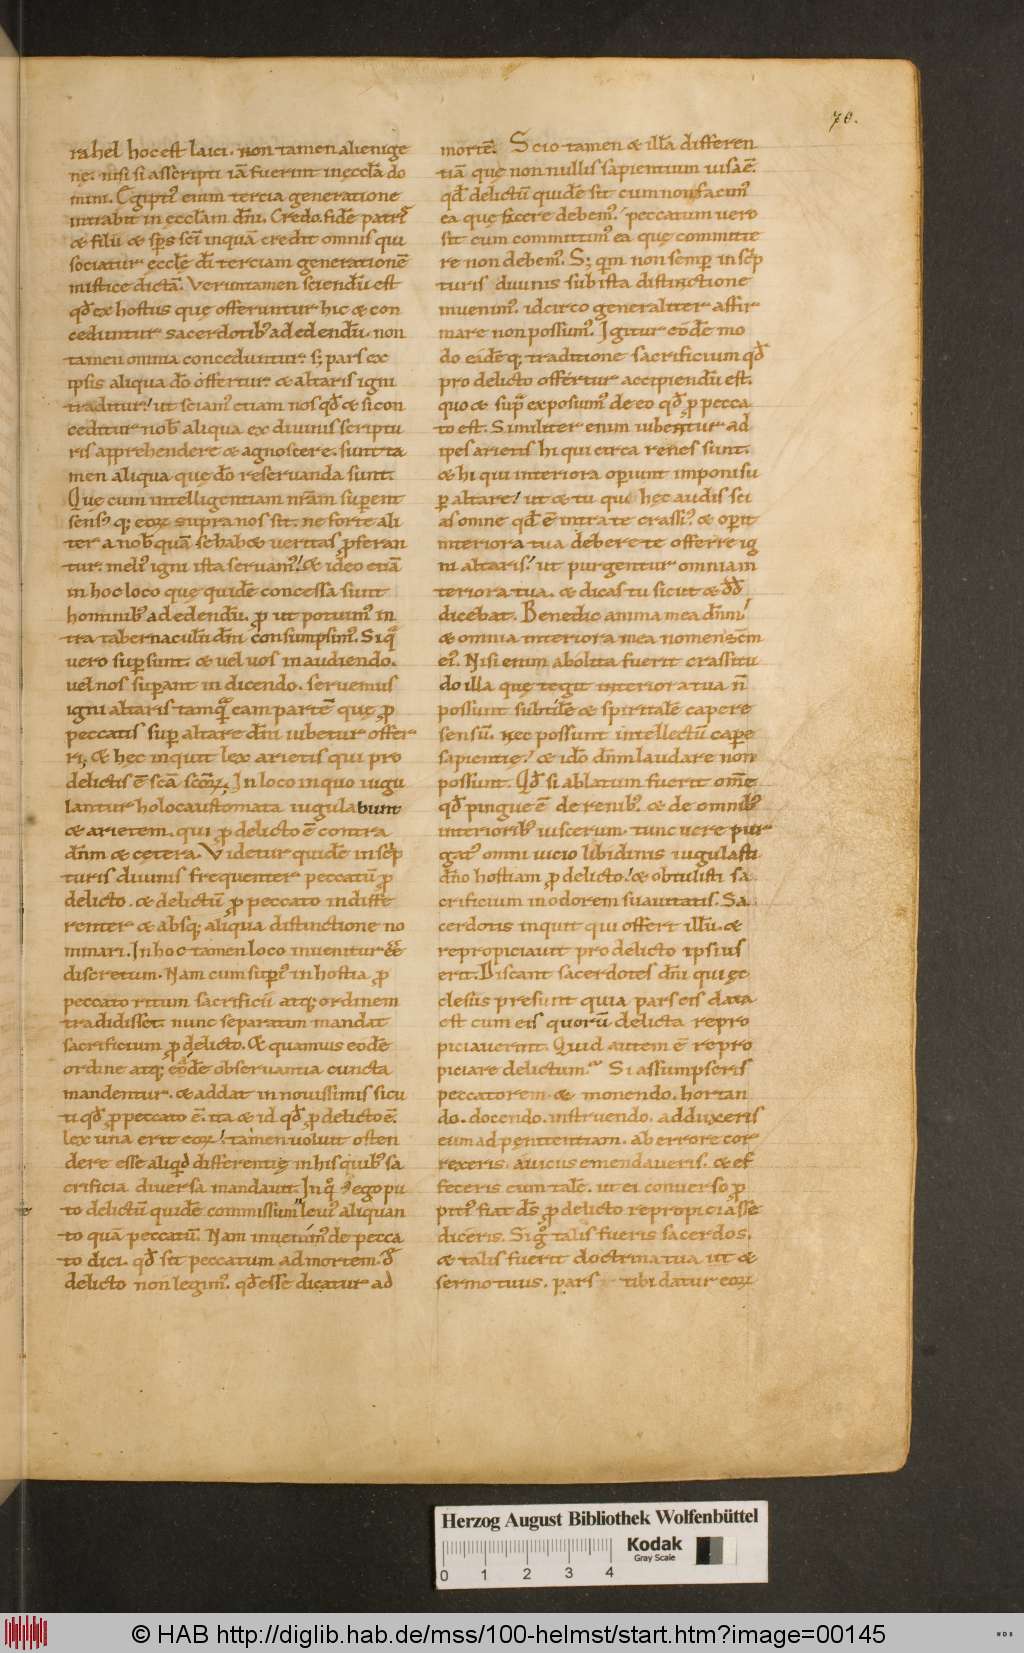 70.
rahel hoc est laici. non tamen alienige
nę. nisi si asscripti iā fuerint inęccłā do
mini. Egiptiꝰ enim tercia generatione
intrabit in ęccłam dn̄i. Credo. fidē patrꝭ
& filii & sp̄s sc̄i inquā credit omnis qui
sociatur ęccłę dī terciam generationē
mistice dictā. Veruntamen sciendū est
qđ ex hostiis quę offeruntur hic & con
ceduntur sacerdotibꝰ ad edendū. non
tamen omnia conceduntur. s; pars ex
ipsis aliqua dō offertur. & altaris igni
traditur. ut sciamꝰ etiam nos qđ & si con
ceditur nob̄ aliqua ex diuinis scriptu
ris apprehendere & agnoscere. sunt ta
men aliqua quę dō reseruanda sunt.
Quę cum intelligentiam nr̄am superent
sensꝰ q; eoꝝ supra nos sit. ne forte ali
ter a nob̄ quā se habet ueritas ꝓferan
tur. meliꝰ igni ista seruamꝰ. & ideo etiā
in hoc loco quę quidē concessa sunt
hominibꝰ ad edendū. ꝓ ut potuimꝰ in
tra tabernaculū dn̄i consumpsimꝰ. Si qͣ
uero suꝑsunt. & uel uos in audiendo.
uel nos suꝑant in dicendo. seruemus
igni altaris tamqͣ eam partē quę ꝓ
peccatis suꝑ altare dn̄i iubetur offer
ri; & hęc inquit lex arietis qui pro
delictis ē sc̄a sc̄oꝝ. In loco in quo iugu
lantur holocaustomata iugulabunt
& arietem. qui ꝓ delicto ē contra
dn̄m & cętera. Videtur quidē in sc̄ͥp
turis diuinis frequenter peccatū ꝓ
delicto. & delictū ꝓ peccato indiffe
renter & absq; aliqua distinctione no
minari. In hoc tamen loco inuenitur eē
discretum. Nam cum supiꝰ in hostia ꝓ
peccato ritum sacrificii atq; ordinem
tradidisset. nunc separatim mandat
sacrificium ꝓ delicto. & quamuis eodē
ordine atq; eodē obseruantia cuncta
mandentur. & addat in nouissimis sicu
ti qđ ꝓ peccato ē. ita & id qđ ꝓ delicto ē.
lex una erit eoꝝ. tamen uoluit osten
dere esse aliqđ differentię in his quibꝰ sa
crificia diuersa mandauit. In qͦ ꝯ ego pu
to delictū quidē commissum leuiꝰ aliquan
to quā peccatū. Nam inuenimꝰ de pecca
to dici. qđ sit peccatum ad mortem. đ
delicto non legimꝰ. qđ esse dicatur ad
mortē. Scio tamen & illā differen
tiā quę non nullis sapientium uisa ē.
qđ delictū quidē sit cum non facimꝰ
ea quę facere debemꝰ. peccatum uero
sit cum committimꝰ ea quę committe
re non debemꝰ. S; qm̄ non semꝑ in sc̄ͥp
turis diuinis sub ista distinctione
inuenimꝰ. idcirco generaliter affir
mare non possumꝰ. Igitur eodē mo
do eadē q; traditione sacrificium qđ
pro delicto offertur accipiendū est.
quo & supͣ exposuimꝰ de eo qđ ꝓ pecca
to est. Similiter enim iubentur ad
ipes arietis hi qui circa renes sunt.
& hi qui interiora oꝑiunt imponi su
ꝑ altare. ut & tu qui hęc audis sci
as omne qđ ē intra te crassiꝰ & oꝑit
interiora tua debere te offerre ig
ni altaris. ut purgentur omnia in
teriora tua. & dicas tu sicut & đđ
dicebat. Benedic anima mea dn̄m.
& omnia interiora mea nomen sc̄m
eiꝰ. Nisi enim abolita fuerit crassitu
do illa quę tegit interiora tua n̄
possunt subtilē & spiritalē capere
sensū. nec possunt intellectū capere
sapientię. & idō dn̄m laudare non
possunt. Qđ si ablatum fuerit omē
qđ pingue ē de renibꝰ. & de omnibꝰ
interioribꝰ uiscerum. tunc uere pur
gatꝰ omni uicio libidinis iugulasti
dn̄o hostiam ꝓ delicto. & obtulisti sa
crificium in odorem suauitatis. Sa
cerdotis inquit qui offert illū. &
repropiciauit pro delicto ipsius
erit. Discant sacerdotes dn̄i qui ęc
clesiis presunt quia pars eis data
est cum eis quorū delicta repro
piciauerint. Quid autem ē repro
piciare delictum. Si assumpseris
peccatorem & monendo. hortan
do. docendo. instruendo. adduxeris
eum ad pęnitentiam. ab errore cor
rexeris. a uiciis emendaueris. & ef
feceris eum talē. ut ei conuerso ꝓ
pitiꝰ fiat d̄s ꝓ delicto repropiciasse
diceris. Si gͦ talis fueris sacerdos.
& talis fuerit doctrina tua ut &
sermo tuus. pars tibi datur eoꝝ
Herzog August Bibliothek Wolfenbüttel
Kodak
Gray Scale
0 1 2 3 4
© HAB http://diglib.hab.de/mss/100-helmst/start.htm?image=00145